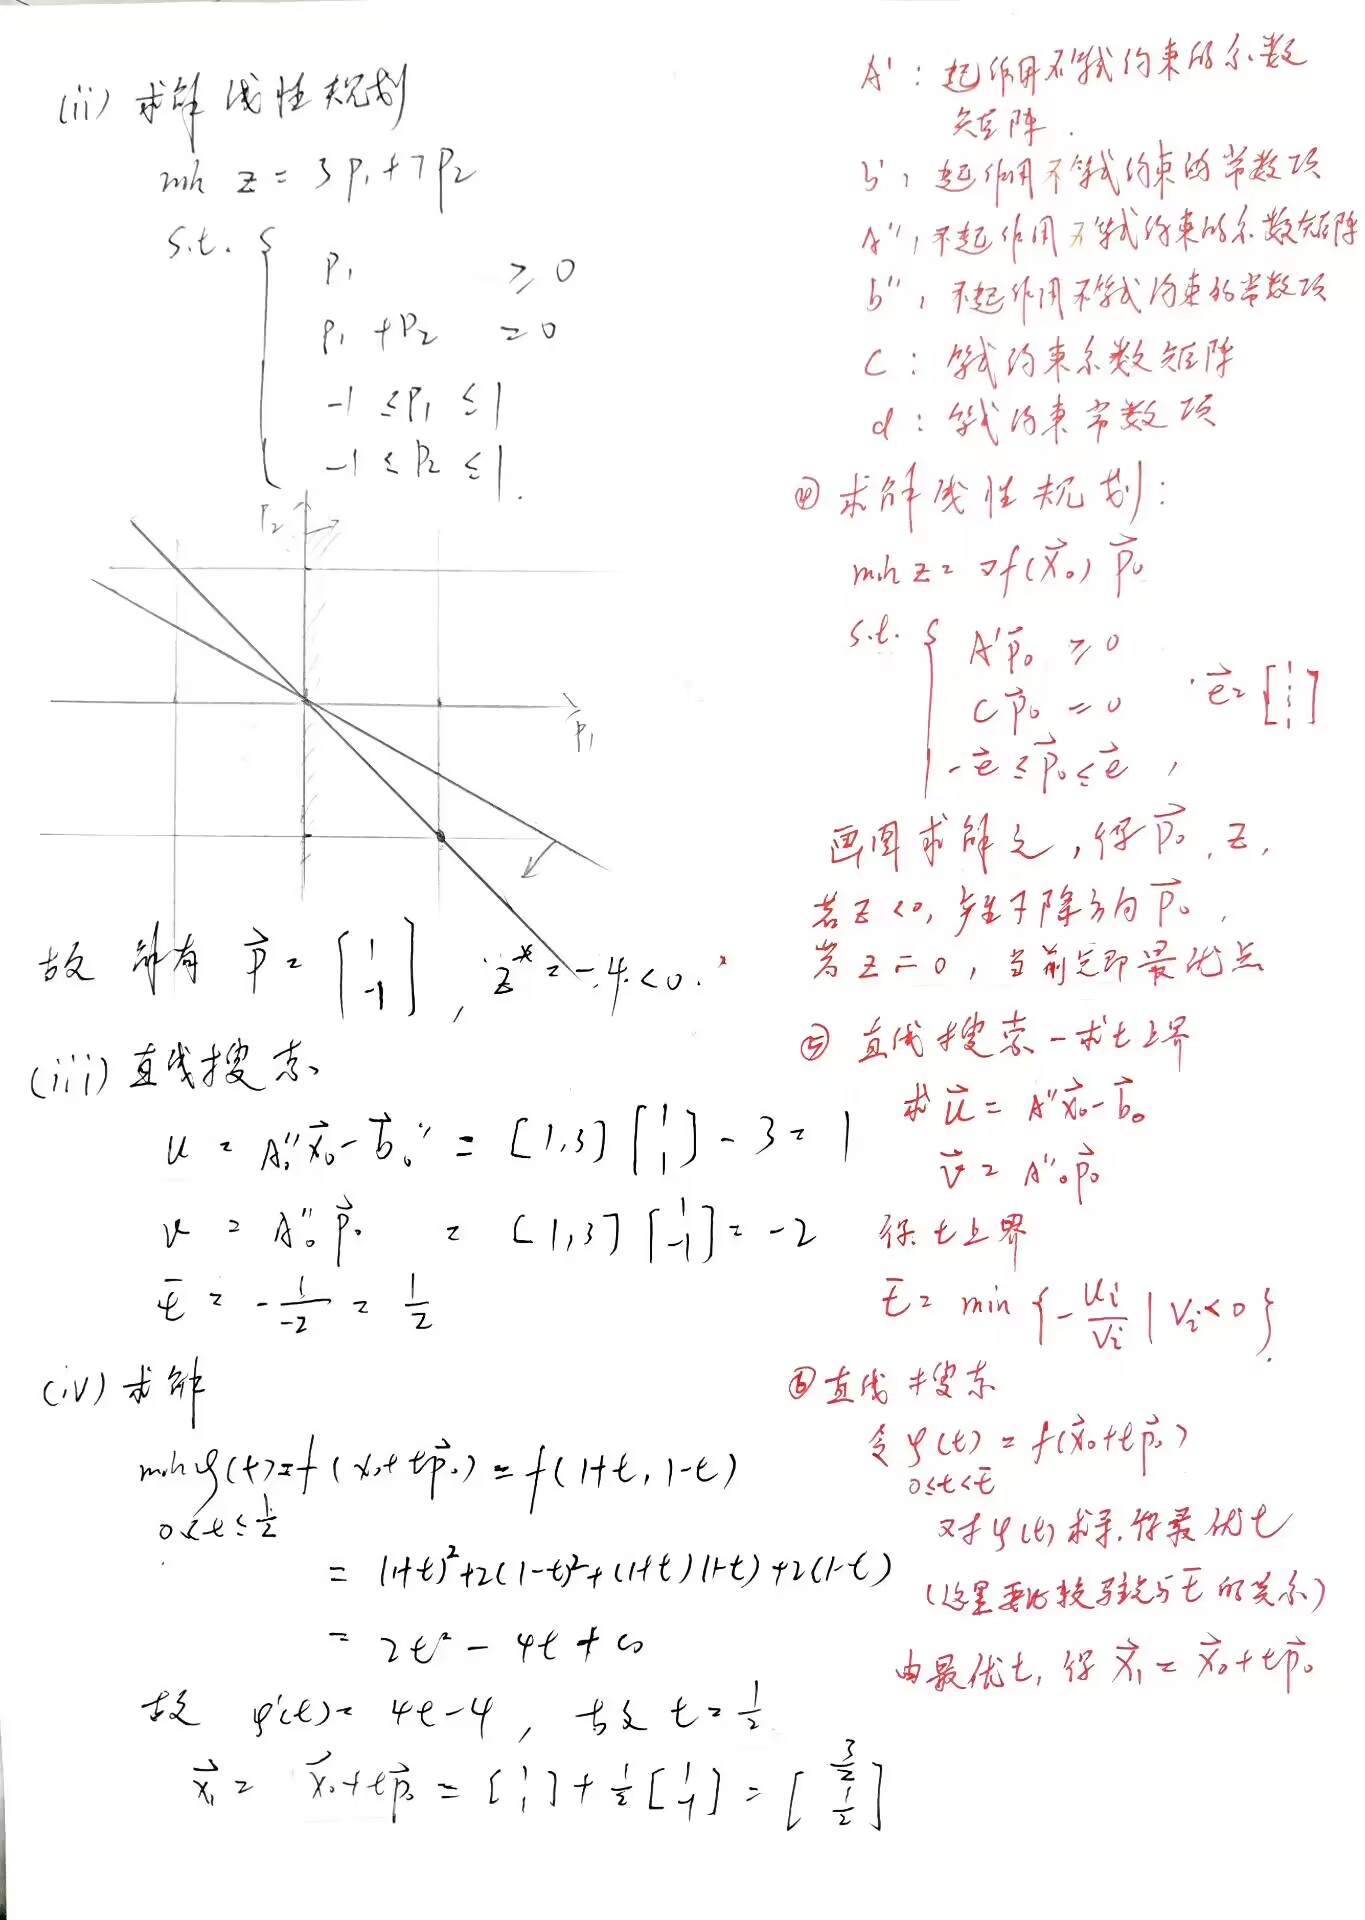 (ii) 求解线性规划
min z = 3p₁+7p₂
s.t. {
p₁ ≥ 0
p₁ + p₂ = 0
-1 ≤ p₁ ≤ 1
-1 ≤ p₂ ≤ 1.
p₂
p₁
故解有 p⃗ = [1 -1], z* = -4 < 0.
(iii) 直线搜索
u = A₀''x⃗₀ - b⃗₀'' = [1,3] [1 1] - 3 = 1
v = A₀''p⃗₀ = [1,3] [1 -1] = -2
t̄ = -1/-2 = 1/2
(iv) 求解
min φ(t) = f(x₀+tp⃗₀) = f(1+t, 1-t)
0≤t≤1/2
= (1+t)²+2(1-t)²+(1+t)(1-t)+2(1-t)
= 2t² - 4t + 6
故 φ'(t) = 4t-4, 故 t = 1/2
x⃗₁ = x⃗₀+tp⃗₀ = [1 1] + 1/2 [1 -1] = [3/2 1/2]
A' : 起作用不等式约束的系数
矩阵.
b', 起作用不等式约束的常数项
A'', 不起作用不等式约束的系数矩阵
b'', 不起作用不等式约束的常数项
C : 等式约束系数矩阵
d : 等式约束常数项
④ 求解线性规划:
min z = ∇f(x⃗₀) p⃗₀
s.t. {
A'p⃗₀ ≥ 0
Cp⃗₀ = 0
e⃗ = [1 ⋮ 1]
-e⃗ ≤ p⃗₀ ≤ e⃗,
画图求解之, 得 p⃗₀, z,
若 z<0, 产生下降方向 p⃗₀,
若 z=0, 当前点即最优点
⑤ 直线搜索-求t上界
求 u⃗ = A''x⃗₀ - b⃗₀
v⃗ = A''₀p⃗₀
得 t上界
t̄ = min {-uᵢ/vᵢ | vᵢ<0}.
⑥ 直线搜索
令 φ(t) = f(x⃗₀+tp⃗₀)
0≤t<t̄
对 φ(t) 求导, 得最优t
(这里要比较与t̄的关系)
由最优t, 得 x⃗₁ = x⃗₀+tp⃗₀